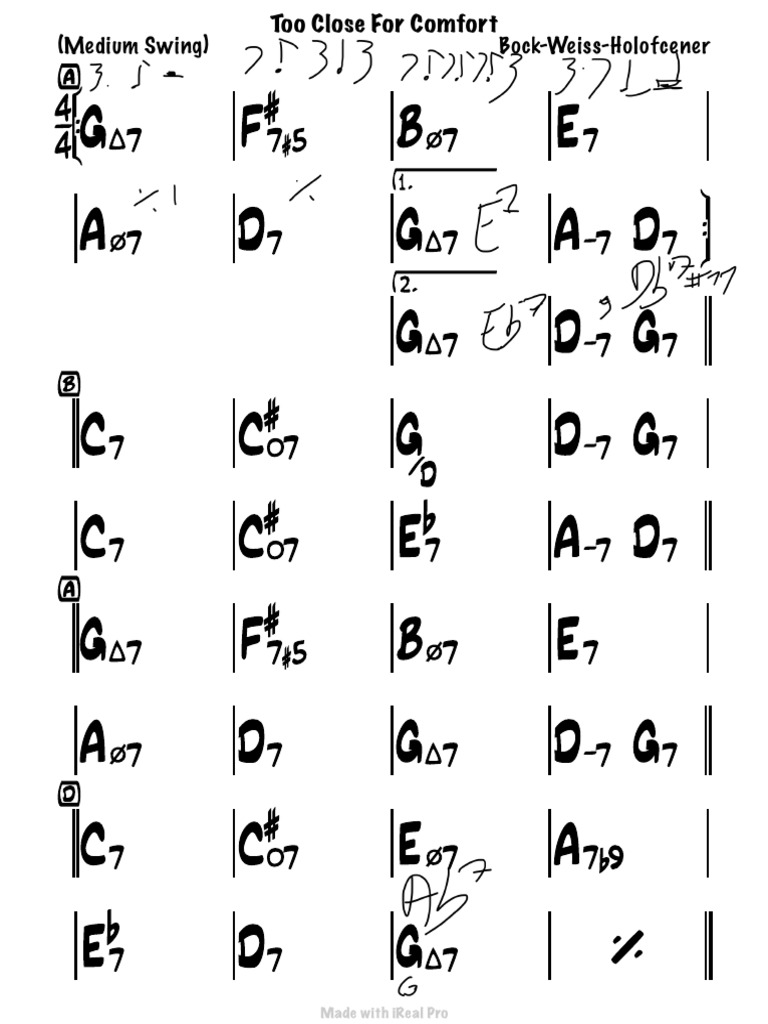 Too Close For Comfort
(Medium Swing) Bock-Weiss-Holofcener
A
4/4 GΔ7 F#7#5 Bø7 E7
Aø7 ٪ D7 ٪ 1. GΔ7 E7 A-7 D7
2. GΔ7 Eb7 D-7 9 G7 Db7#11
B
C7 C#o7 G/D D-7 G7
C7 C#o7 Eb7 A-7 D7
A
GΔ7 F#7#5 Bø7 E7
Aø7 D7 GΔ7 D-7 G7
D
C7 C#o7 Eø7 A7b9
Ab7
Eb7 D7 GΔ7 ٪
G
Made with iReal Pro